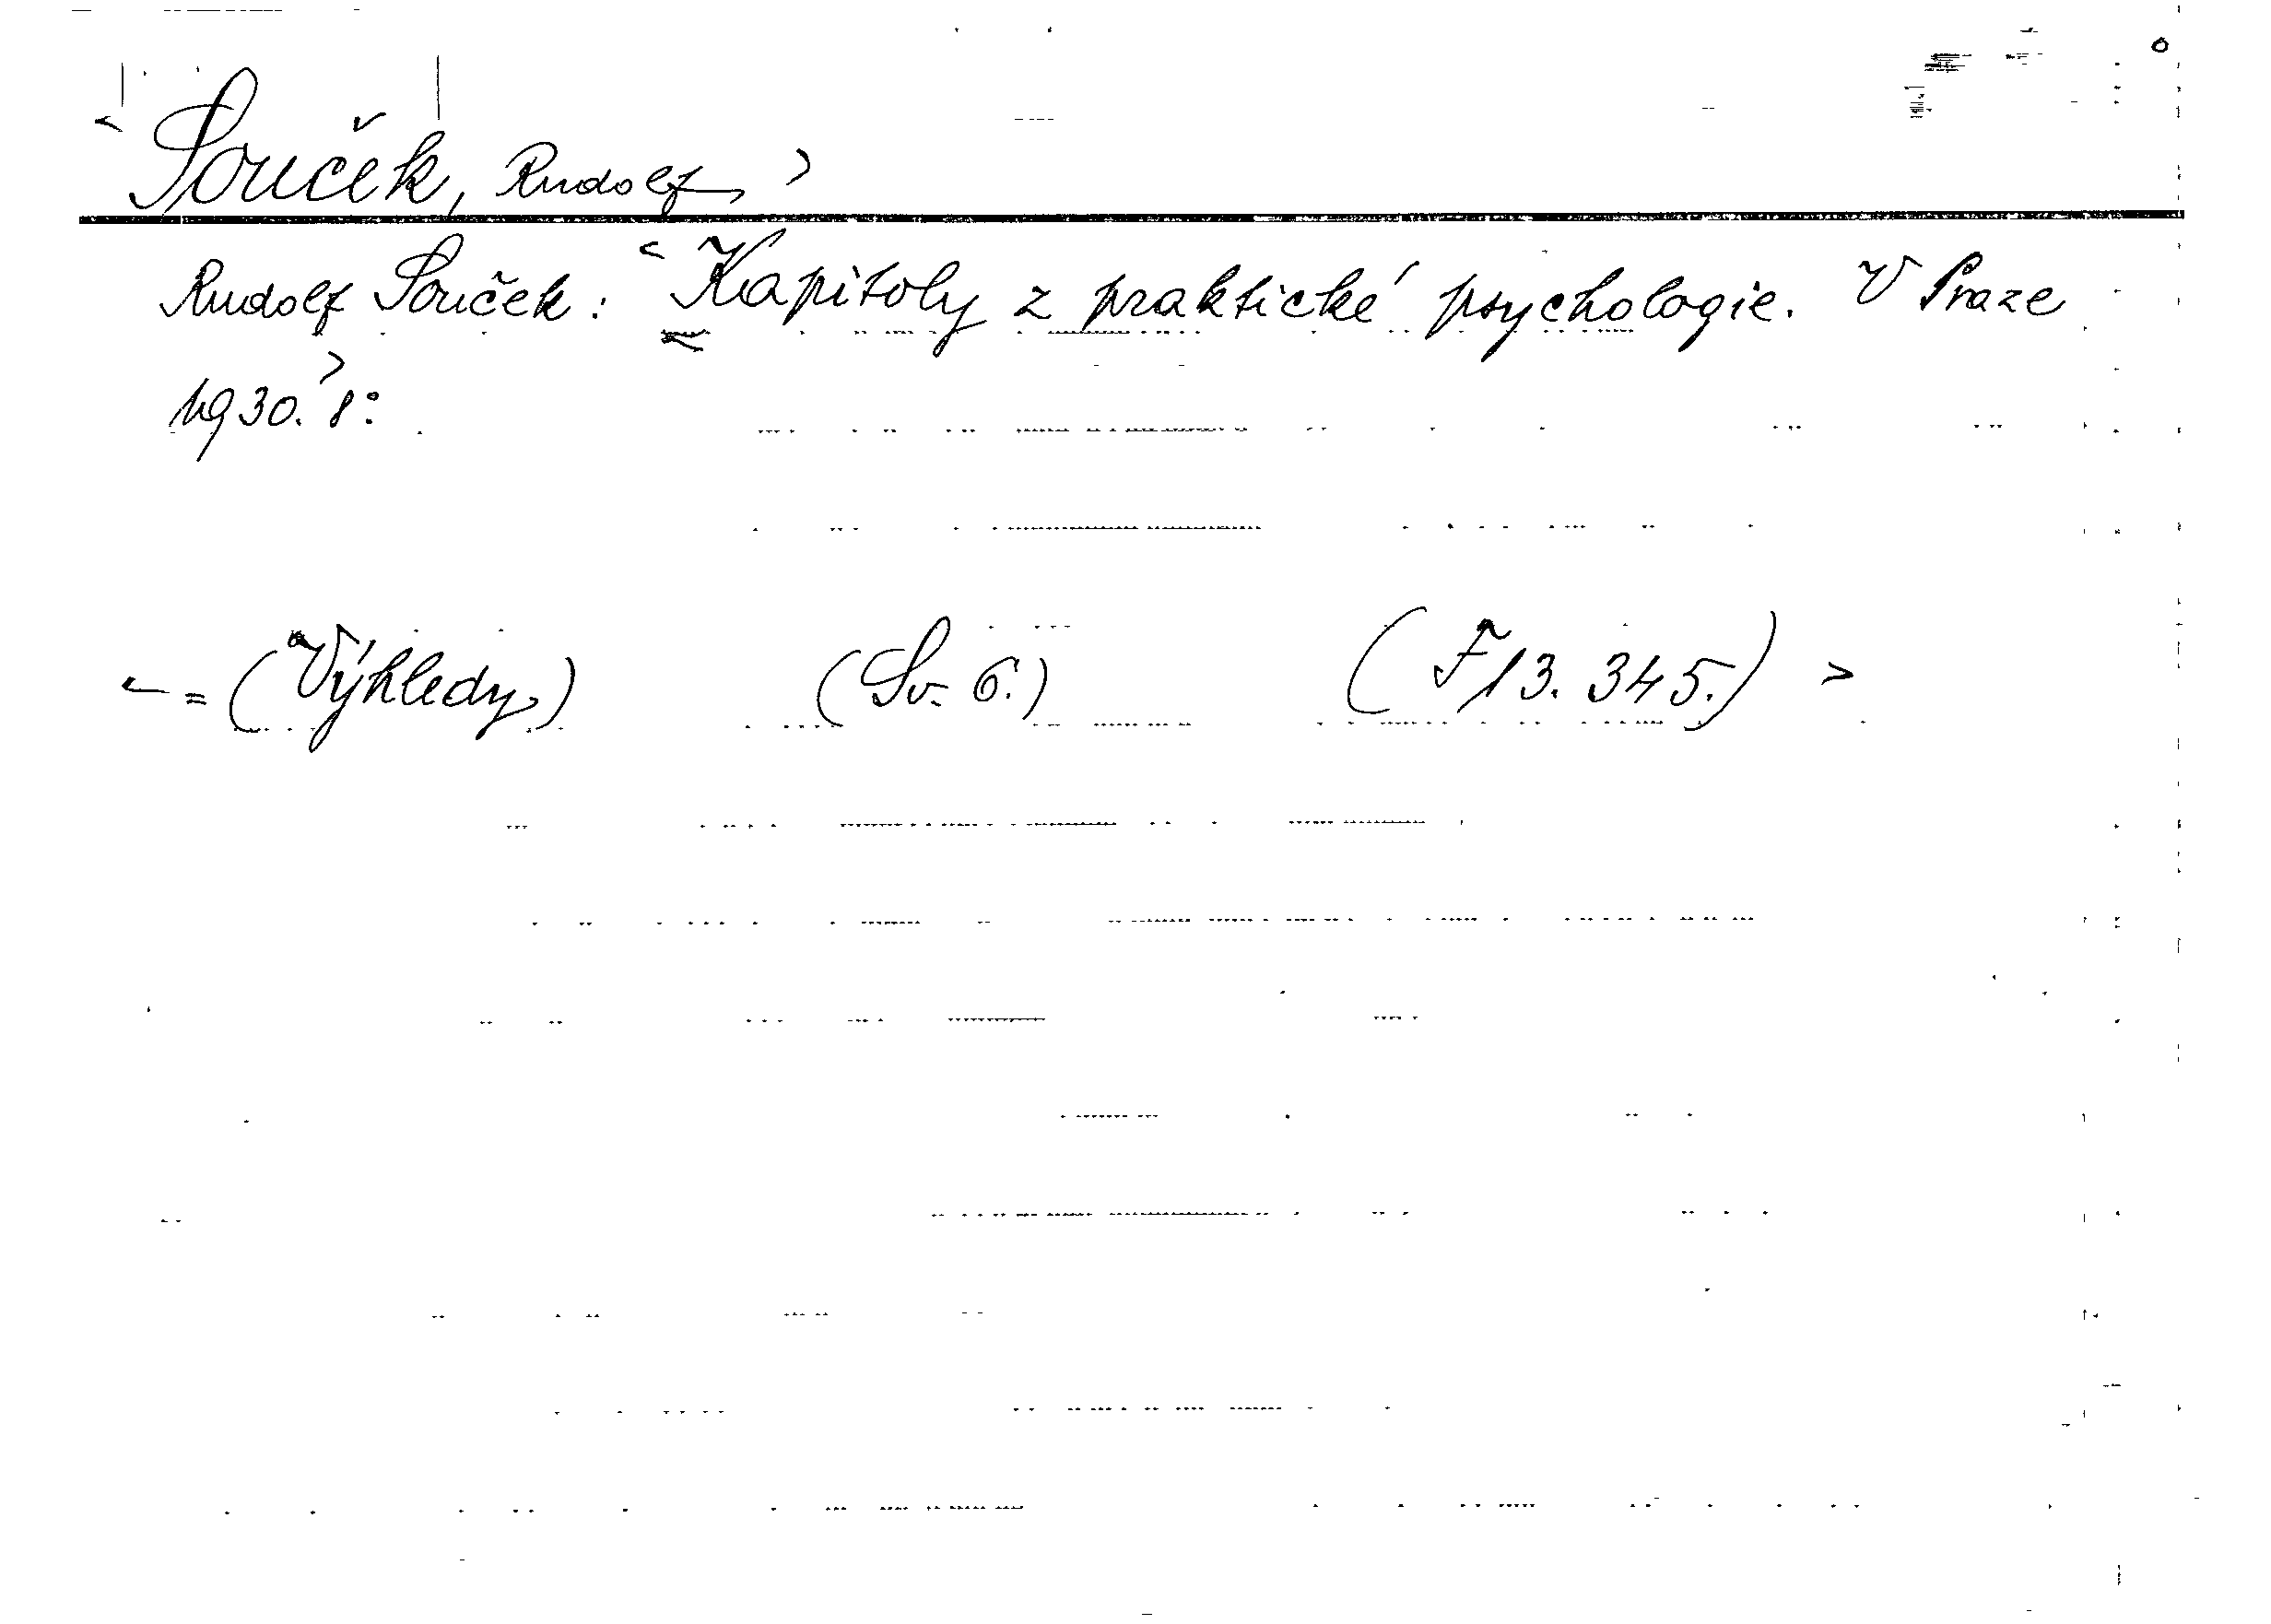 < Souček, Rudolf, >
Rudolf Souček: < Kapitoly z praktické psychologie. V Praze
1930. > 8°.
< = (Výhledy,) (Sv. 6.) (F 13. 345.) >